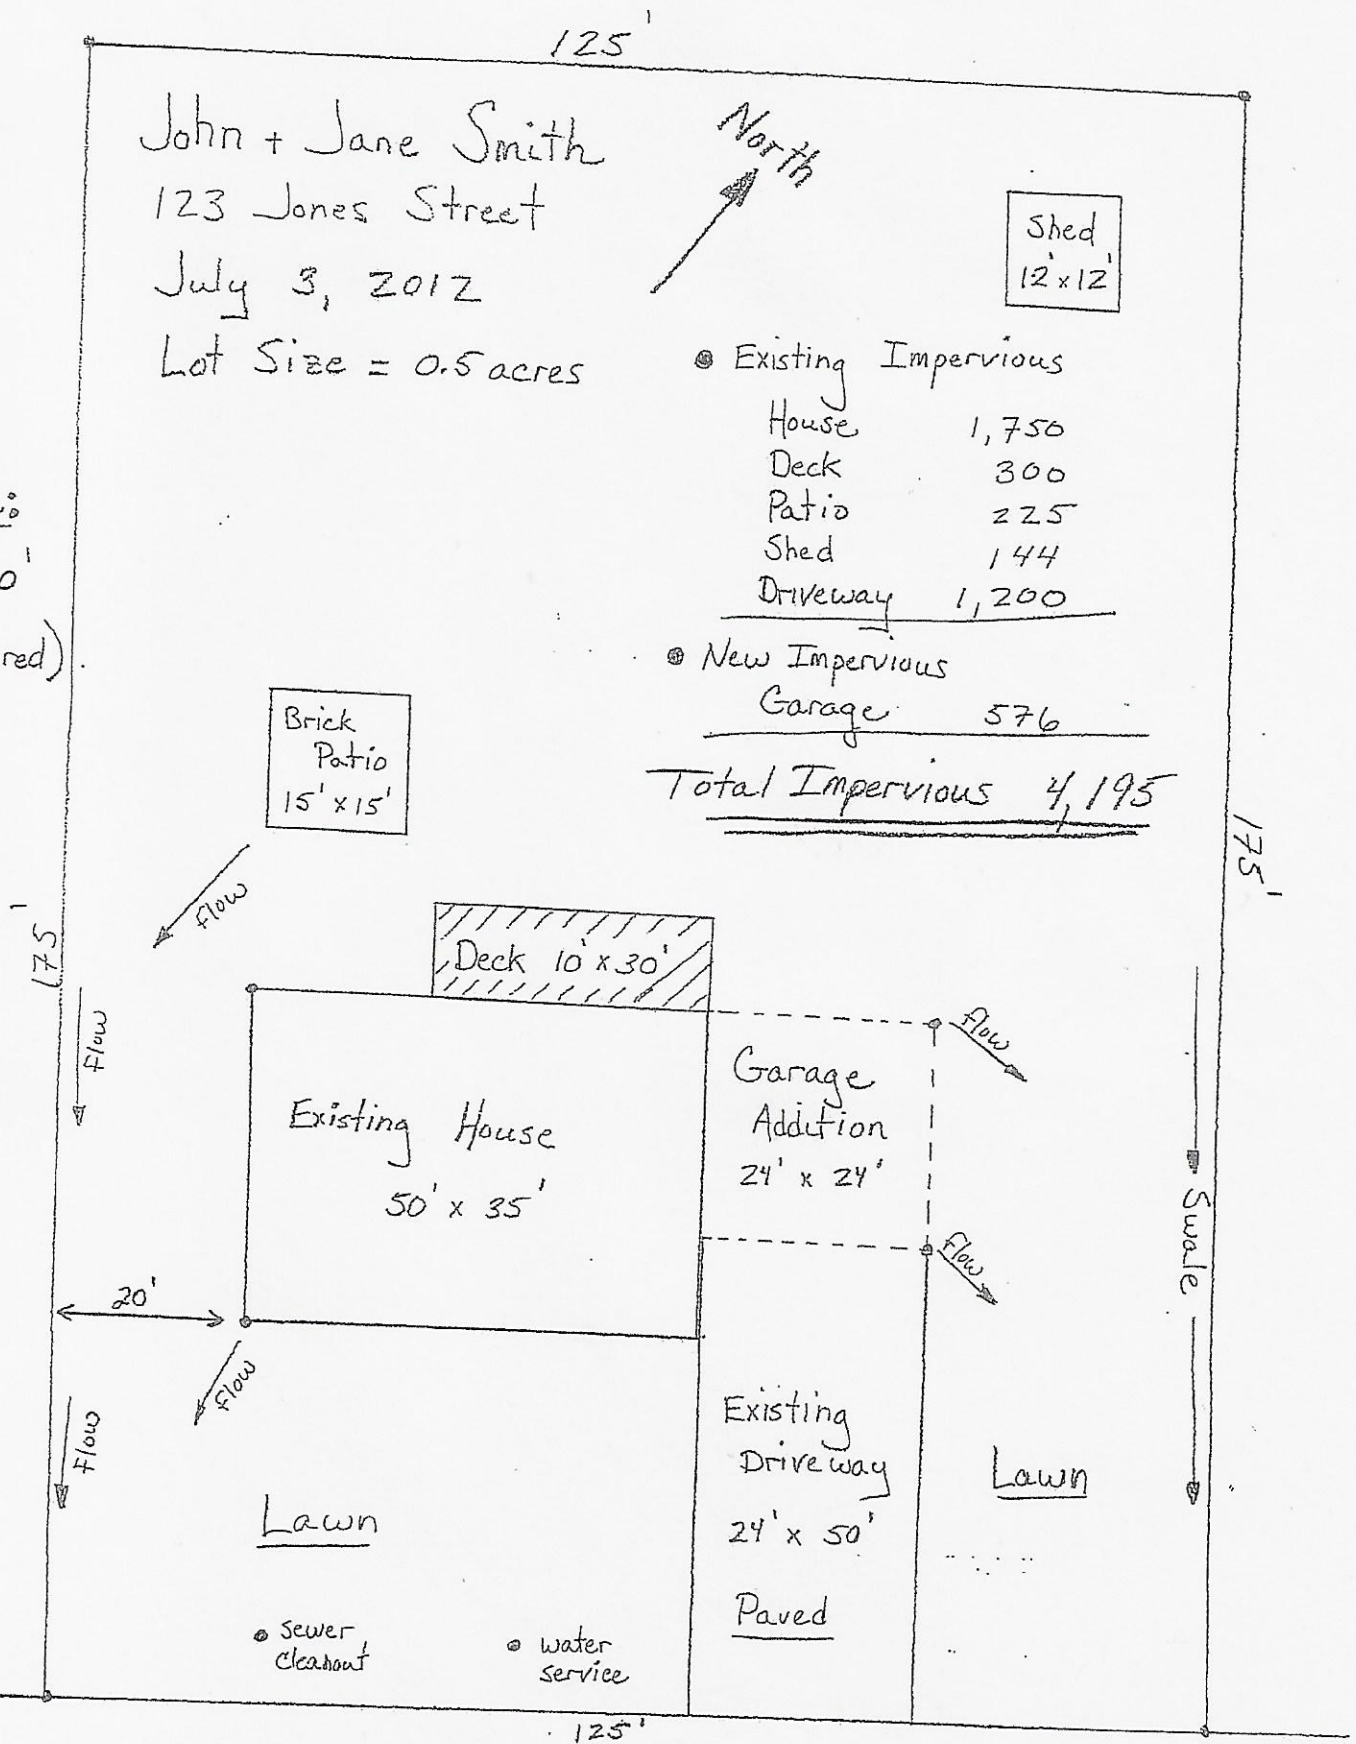 125'
John + Jane Smith
123 Jones Street
July 3, 2012
Lot Size = 0.5 acres
North
Shed
12' x 12'
Existing Impervious
House 1,750
Deck 300
Patio 225
Shed 144
Driveway 1,200
New Impervious
Garage 576
Total Impervious 4,195
red)
Brick
Patio
15' x 15'
175'
175'
flow
flow
Deck 10' x 30'
Existing House
50' x 35'
Garage
Addition
24' x 24'
flow
flow
Swale
20'
flow
flow
Existing
Driveway
24' x 50'
Paved
Lawn
Lawn
sewer
cleanout
water
service
125'